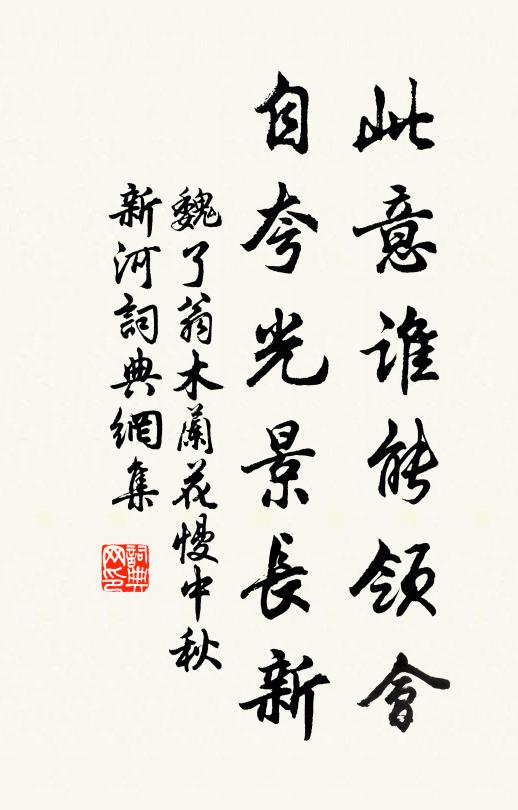 此意誰能領會
自夸光景長新
魏了翁木蘭花慢中秋
新河詞典網集
詞典网印